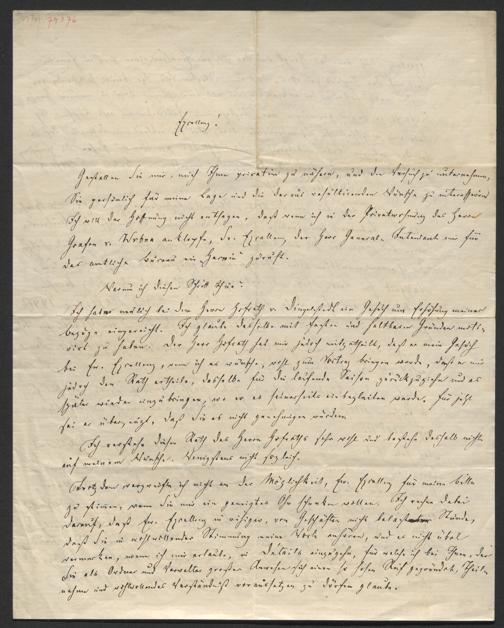 74376
Exzellenz!
Gestatten Sie mir, mich Ihnen privatim zu nähern, und den Versuch zu unternehmen,
Sie persönlich für meine Lage und die daraus resultirenden Wünsche zu interessiren.
Ich will der Hoffnung nicht entsagen, daß wenn ich in der Privatwohnung des Herrn
Grafen v. Wrbna anklopfe, Se. Exzellenz, der Herr General-Intendant mir für
das amtliche Bureau ein "Herein" zuruft.
Warum ich diesen Schritt thue?
Ich habe neulich bei dem Herrn Hofrath v. Dingelstedt ein Gesuch um Erhöhung meiner
Bezüge eingereicht. Ich glaube dasselbe mit festen und haltbaren Gründen moti-
virt zu haben. Der Herr Hofrath hat mir jedoch mitgetheilt, daß er mein Gesuch
bei Ew. Exzellenz, wenn ich es wünsche, wohl zum Vortrag bringen werde, daß er mir
jedoch den Rath ertheile, dasselbe für die laufende Saison zurückzuziehen und es
später wieder einzubringen, wo er es seinerseits einbegleiten werde. Für jetzt
sei er überzeugt, daß Sie es nicht genehmigen würden.
Ich verstehe diesen Rath des Herrn Hofraths sehr wohl und bestehe deshalb nicht
auf meinem Wunsche. Wenigstens nicht sogleich.
Trotzdem verzweifle ich nicht an der Möglichkeit, Ew. Exzellenz für meine Bitte
zu stimmen, wenn Sie mir ein geneigtes Ohr schenken wollen. Ich rechne dabei
darauf, daß Ew. Exzellenz in ruhiger, von Geschäften nicht belasteter Stunde,
daß Sie in wohlwollender Stimmung meine Worte anhören, und es nicht übel
vermerken, wenn ich mir erlaube, in Details einzugehen, für welche ich bei Ihnen, der
Sie als Ordner und Verwalter großen Anwesens sich einen so hohen Ruf gegründet, Theil-
nahme und wohlwollendes Verständniß voraussetzen zu dürfen glaube.